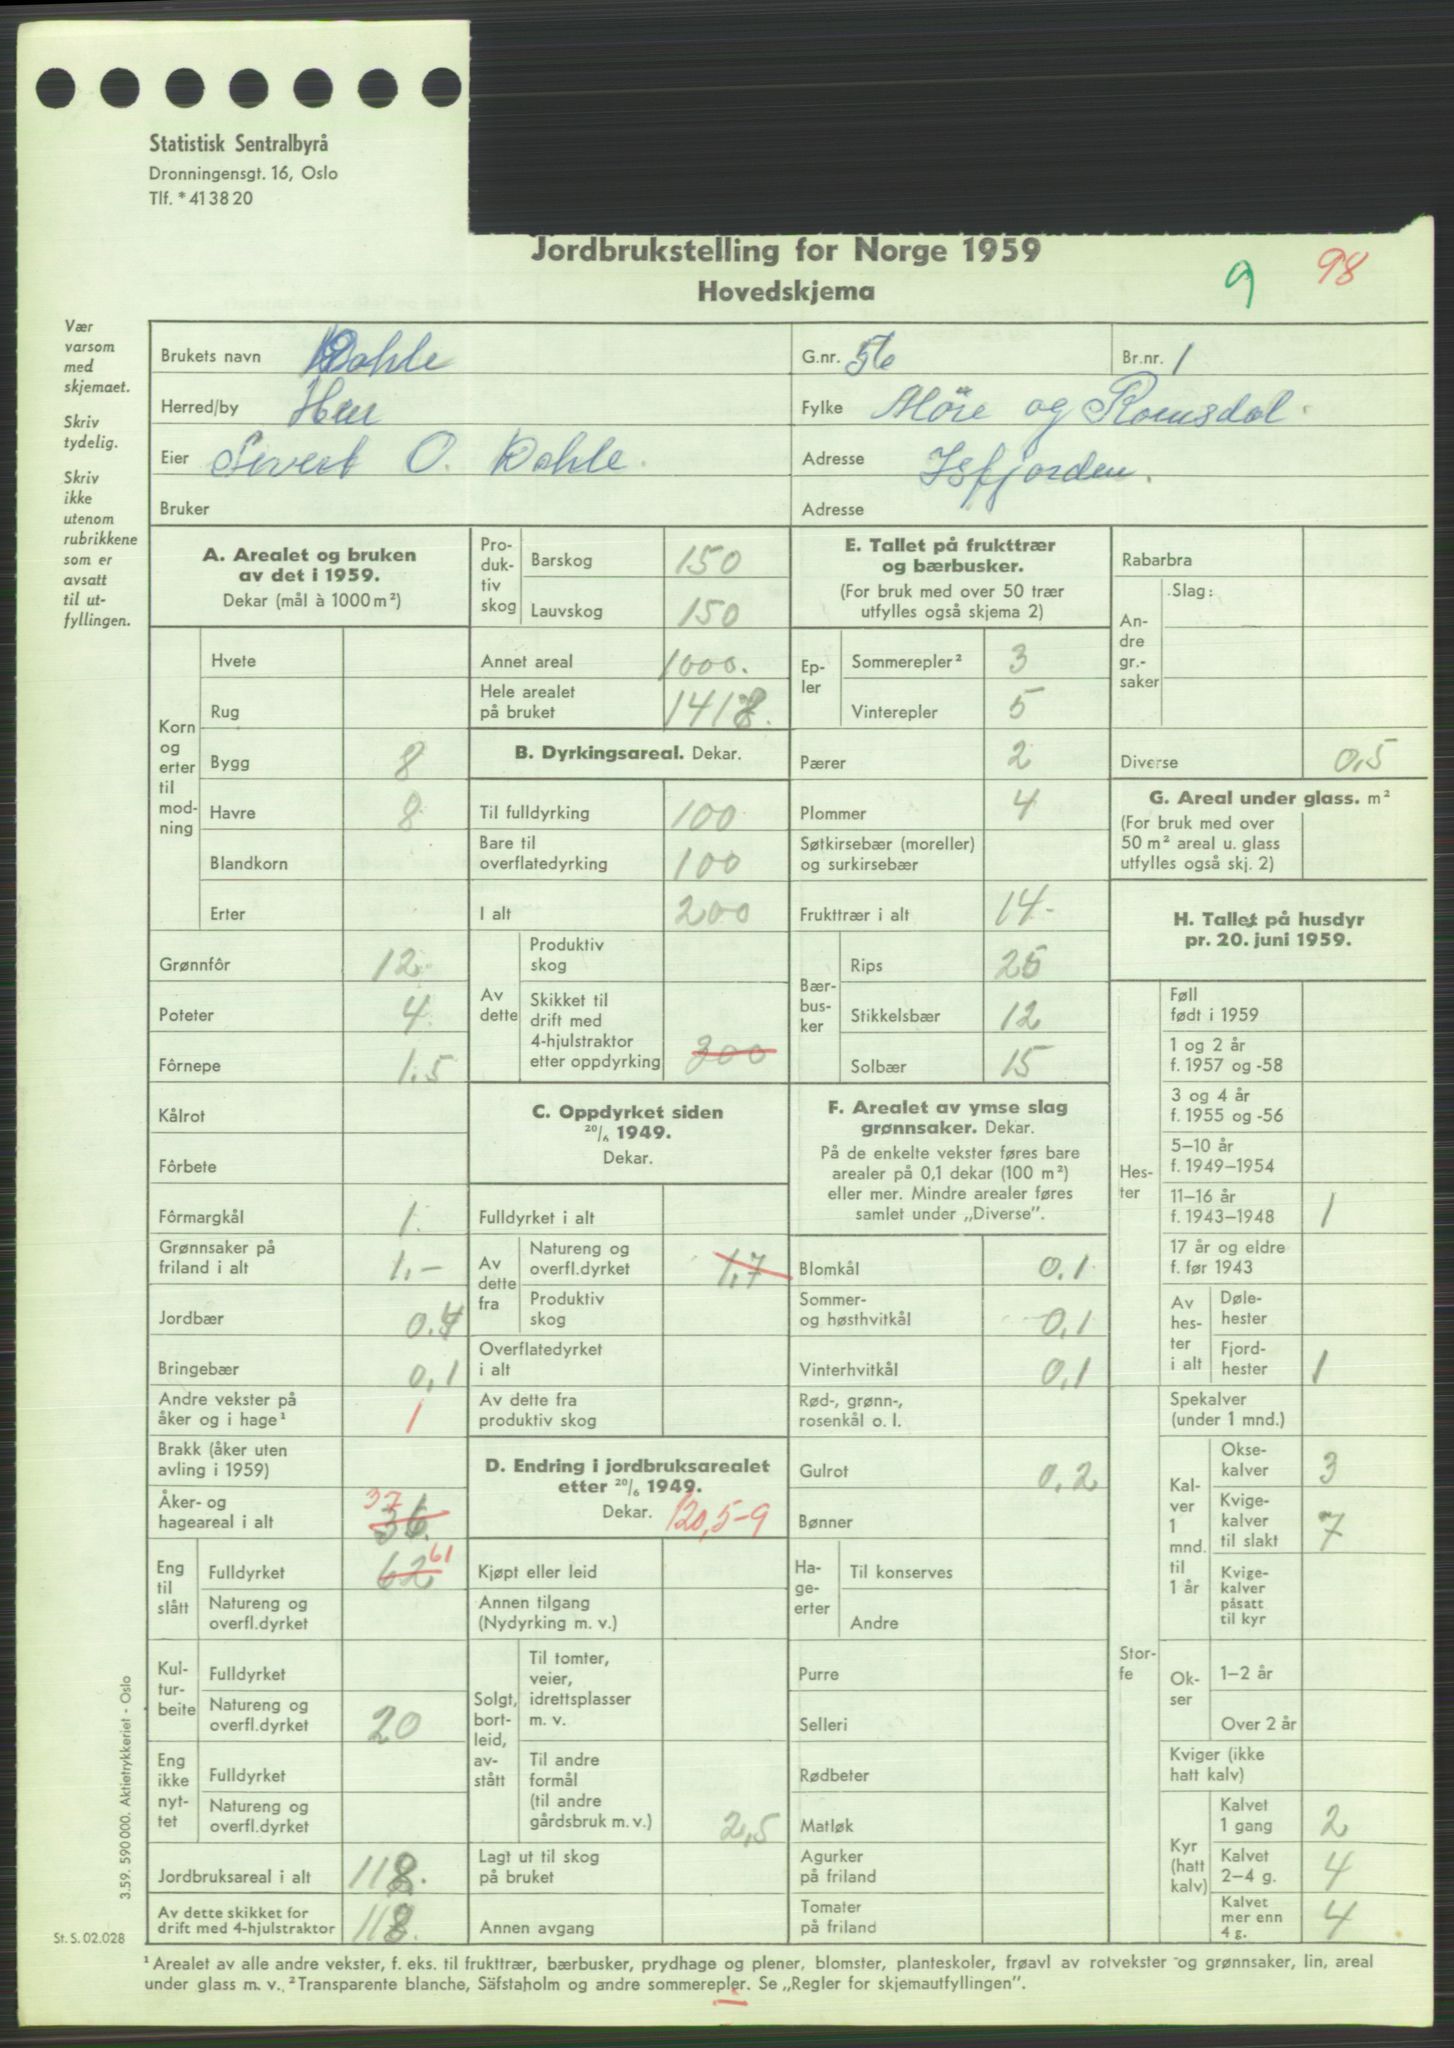 Statistisk Sentralbyrå
Dronningensgt. 16, Oslo
Tlf. * 41 38 20
Jordbrukstelling for Norge 1959
Hovedskjema
9 98
Vær varsom med skjemaet.
Skriv tydelig.
Skriv ikke utenom rubrikkene som er avsatt til utfyllingen.
Brukets navn Dahle G.nr. 56 Br.nr. 1
Herred/by Hen Fylke Möre og Romsdal.
Eier Sivert O. Dahle. Adresse Isfjorden.
Bruker Adresse
A. Arealet og bruken
av det i 1959.
Dekar (mål à 1000 m²)
Korn og erter til modning
Hvete
Rug
Bygg 8
Havre 8
Blandkorn
Erter
Grønnfôr 12
Poteter 4
Fôrnepe 1.5
Kålrot
Fôrbete
Fôrmargkål 1.
Grønnsaker på
friland i alt 1.-
Jordbær 0.4
Bringebær 0,1
Andre vekster på
åker og i hage¹ 1
Brakk (åker uten
avling i 1959)
Åker- og
hageareal i alt 37 36
Eng til slått
Fulldyrket 62 61
Natureng og
overfl.dyrket
Kulturbeite
Fulldyrket
Natureng og
overfl.dyrket 20
Eng ikke nyttet
Fulldyrket
Natureng og
overfl.dyrket
Jordbruksareal i alt 118.
Av dette skikket for
drift med 4-hjulstraktor 118.
Produktiv skog
Barskog 150
Lauvskog 150
Annet areal 1000.
Hele arealet
på bruket 1418.
B. Dyrkingsareal. Dekar.
Til fulldyrking 100
Bare til
overflatedyrking 100
I alt 200
Av dette
Produktiv
skog
Skikket til
drift med
4-hjulstraktor
etter oppdyrking 300
C. Oppdyrket siden
20/6 1949.
Dekar.
Fulldyrket i alt
Av dette fra
Natureng og
overfl.dyrket 1,7
Produktiv
skog
Overflatedyrket
i alt
Av dette fra
produktiv skog
D. Endring i jordbruksarealet
etter 20/6 1949.
Dekar. 120,5-9
Kjøpt eller leid
Annen tilgang
(Nydyrking m. v.)
Solgt, bortleid, avstått
Til tomter,
veier,
idrettsplasser
m. v.
Til andre
formål
(til andre
gårdsbruk m. v.) 2,5
Lagt ut til skog
på bruket
Annen avgang
E. Tallet på frukttrær
og bærbusker.
(For bruk med over 50 trær
utfylles også skjema 2)
Epler
Sommerepler² 3
Vinterepler 5
Pærer 2
Plommer 4
Søtkirsebær (moreller)
og surkirsebær
Frukttrær i alt 14-
Bærbusker
Rips 25
Stikkelsbær 12
Solbær 15
F. Arealet av ymse slag
grønnsaker. Dekar.
På de enkelte vekster føres bare
arealer på 0,1 dekar (100 m²)
eller mer. Mindre arealer føres
samlet under „Diverse".
Blomkål 0.1
Sommer-
og høsthvitkål 0,1
Vinterhvitkål 0,1
Rød-, grønn-,
rosenkål o. l.
Gulrot 0,2
Bønner
Hageerter
Til konserves
Andre
Purre
Selleri
Rødbeter
Matløk
Agurker
på friland
Tomater
på friland
Rabarbra
Andre gr.-saker
Slag:
Diverse 0,5
G. Areal under glass. m²
(For bruk med over
50 m² areal u. glass
utfylles også skj. 2)
H. Tallet på husdyr
pr. 20. juni 1959.
Hester
Føll
født i 1959
1 og 2 år
f. 1957 og -58
3 og 4 år
f. 1955 og -56
5–10 år
f. 1949–1954
11–16 år
f. 1943–1948 1
17 år og eldre
f. før 1943
Av hester i alt
Dølehester
Fjordhester 1
Storfe
Spekalver
(under 1 mnd.)
Kalver 1 mnd. til 1 år
Oksekalver 3
Kvigekalver
til slakt 7
Kvigekalver
påsatt
til kyr
Okser
1–2 år
Over 2 år
Kviger (ikke
hatt kalv)
Kyr (hatt kalv)
Kalvet
1 gang 2
Kalvet
2–4 g. 4
Kalvet
mer enn
4 g. 4
3.59. 590 000. Aktietrykkeriet - Oslo
St. S. 02.028
¹ Arealet av alle andre vekster, f. eks. til frukttrær, bærbusker, prydhage og plener, blomster, planteskoler, frøavl av rotvekster og grønnsaker, lin, areal
under glass m. v., ² Transparente blanche, Säfstaholm og andre sommerepler. Se „Regler for skjemautfyllingen".